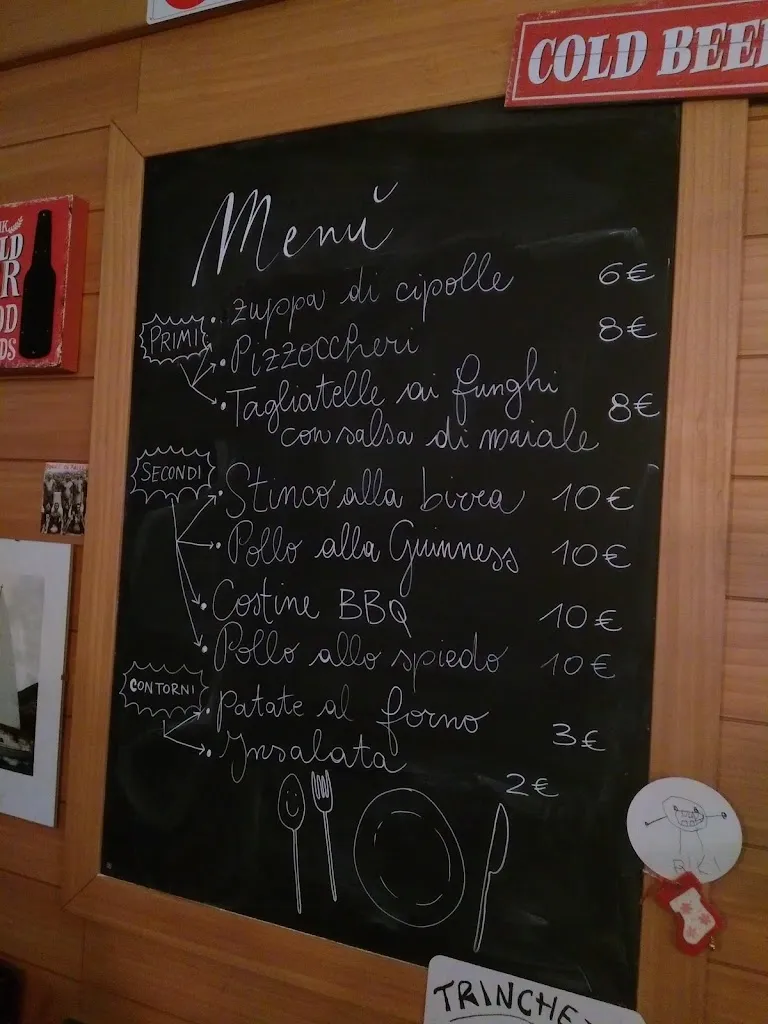 COLD BEE
LD
R
OD
DS
Menù
PRIMI
zuppa di cipolle 6€
Pizzoccheri 8€
Tagliatelle ai funghi 8€
con salsa di maiale
SECONDI
Stinco alla birra 10€
Pollo alla Guinness 10€
Costine BBQ 10€
Pollo allo spiedo 10€
CONTORNI
Patate al forno 3€
Insalata 2€
RIKI
TRINCHE